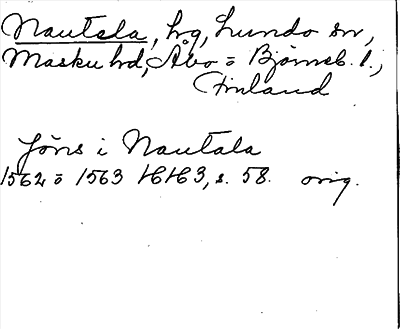 Nautela, hg, Lundo sn,
Masku hd, Åbo = Björneb. l.,
Finland
Jöns i Nautala
1562 = 1563 HH3, s. 58. orig.